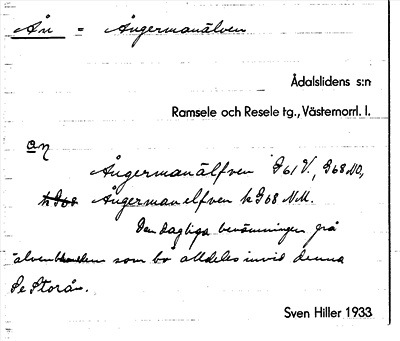 Ån = Ångermanälven
Ådalslidens s:n
Ramsele och Resele tg., Västernorrl. l.
Ångermanälfven G61 V., G68 NO,
Ångermanelfven k G68 NM.
Den dagliga benämningen på
älven som bo alldeles invid denna
Se Storån.
Sven Hiller 1933